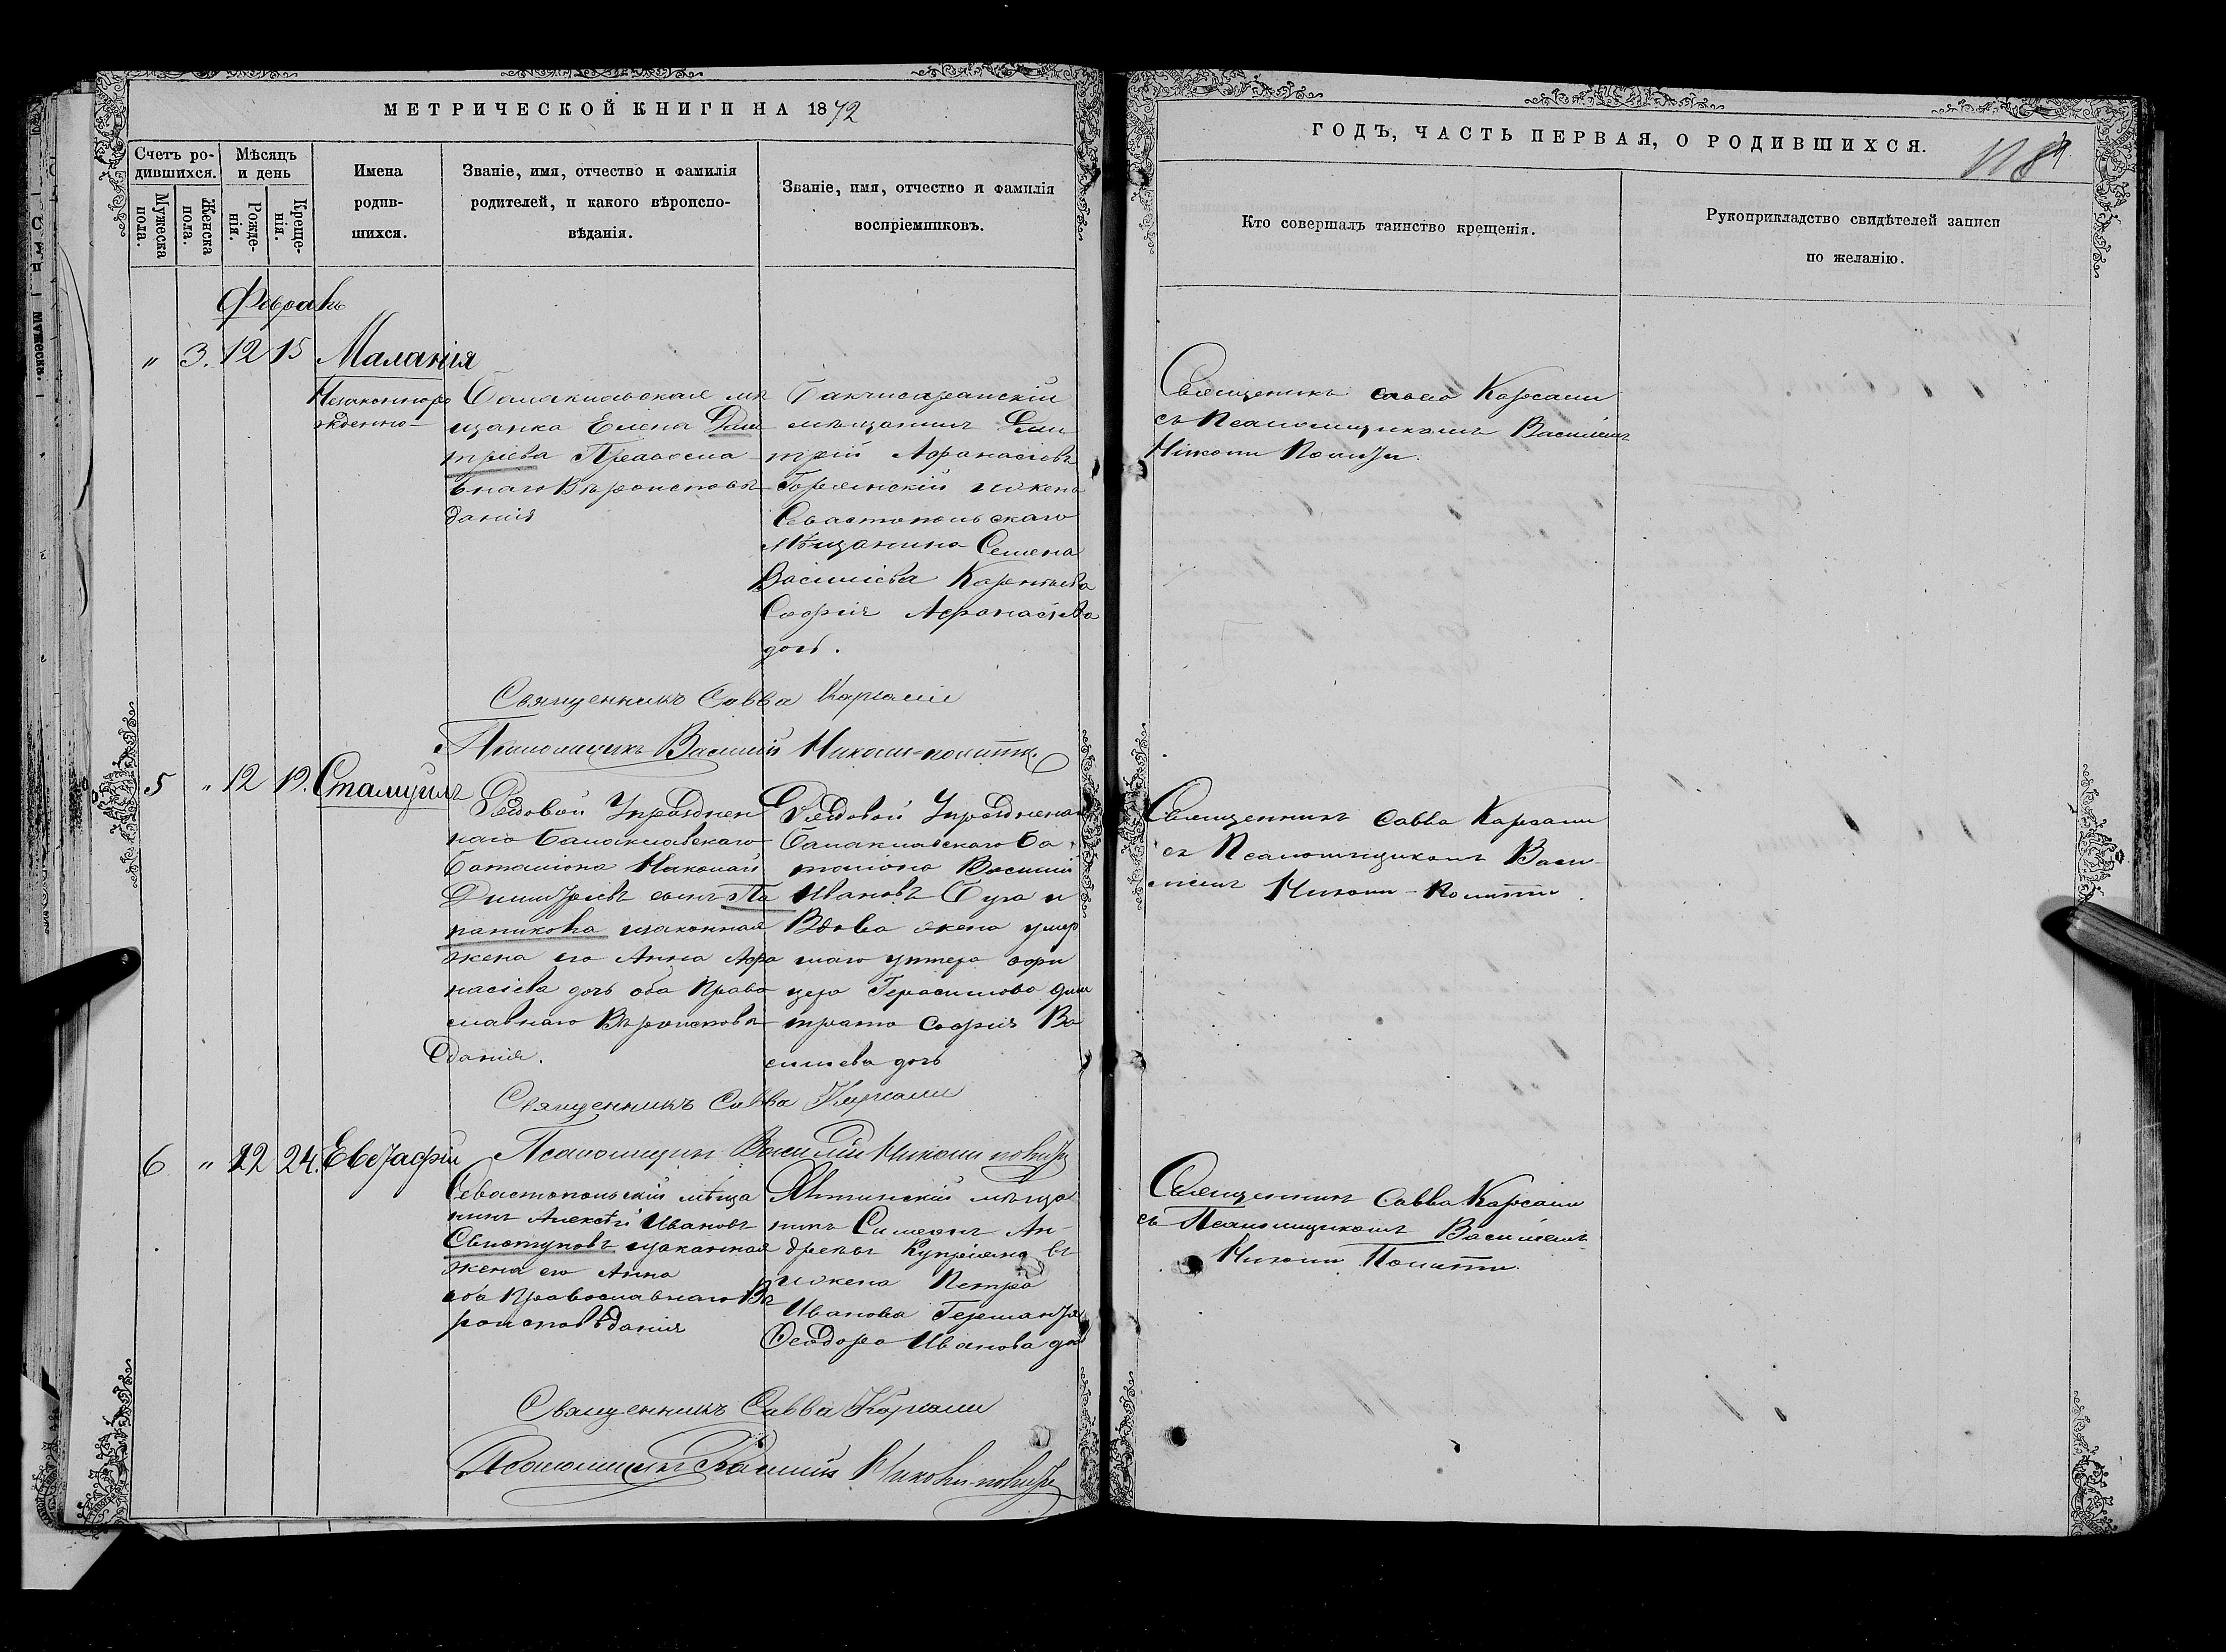 МЕТРИЧЕСКОЙ КНИГИ НА 1872
Счетъ ро-
дившихся.
Мужеска
пола.
Женска
пола.
Мѣсяцъ
и день
Рожде-
нія.
Креще-
нія.
Имена
родив-
шихся.
Званіе, имя, отчество и фамилія
родителей, и какого вѣроиспо-
вѣданія.
Званіе, имя, отчество и фамилія
воспріемниковъ.
Февраль
" 3. 12 15 Маланія
Незаконноро
жденно-
Балаклавская мѣ
щанка Елена Дми
тріева Правосла
внаго Вѣроисповѣ
данія
Бакчисарайскій
мѣщанинъ Дми
трій Афанасіевъ
и жена
Севастопольскаго
Мѣщанина Семена
Василіева
Софія Афанасіева
дочь.
Священникъ Савва
Псаломщикъ Василій Николи-полити.
5 " 12 19. Стамуилъ
Рядовой Упразднен
наго Балаклавскаго
Баталіона Николай
Димитріевъ сынъ Па
паникова изаконная
жена его Анна Афа
насіева дочь оба Право
славнаго Вѣроисповѣ
данія.
Рядовой Упраздненаго
Балаклавскаго Ба
таліона Василій
Ивановъ и
Вдова жена умер
шаго унтеръ офи
цера Герасимова Дми
трата Софія Ва
силіева дочь
Священникъ Савва
6 " 22 24. Евстафій
Псаломщикъ Василій Николи полити
Севастопольскій мѣща
нинъ Алексѣй Ивановъ
изаконная
жена его Анна
оба Православнаго Вѣ
роисповѣданія
Ялтинскій мѣща
нинъ Симеонъ Ан-
дреевъ
и жена Петра
Иванова
Феодора Иванова дочь
Священникъ Савва
Псаломщикъ Василій Николи-полити
ГОДЪ, ЧАСТЬ ПЕРВАЯ, О РОДИВШИХСЯ.
Кто совершалъ таинство крещенія.
Рукоприкладство свидѣтелей записи
по желанію.
Священикъ Савва
съ Псаломщикомъ Василіемъ
Николи Полити.
Священникъ Савва
съ Псаломщикомъ Васи-
ліемъ Николи-Полити.
Священникъ Савва
съ Псаломщикомъ Василіемъ
Николи Полити.